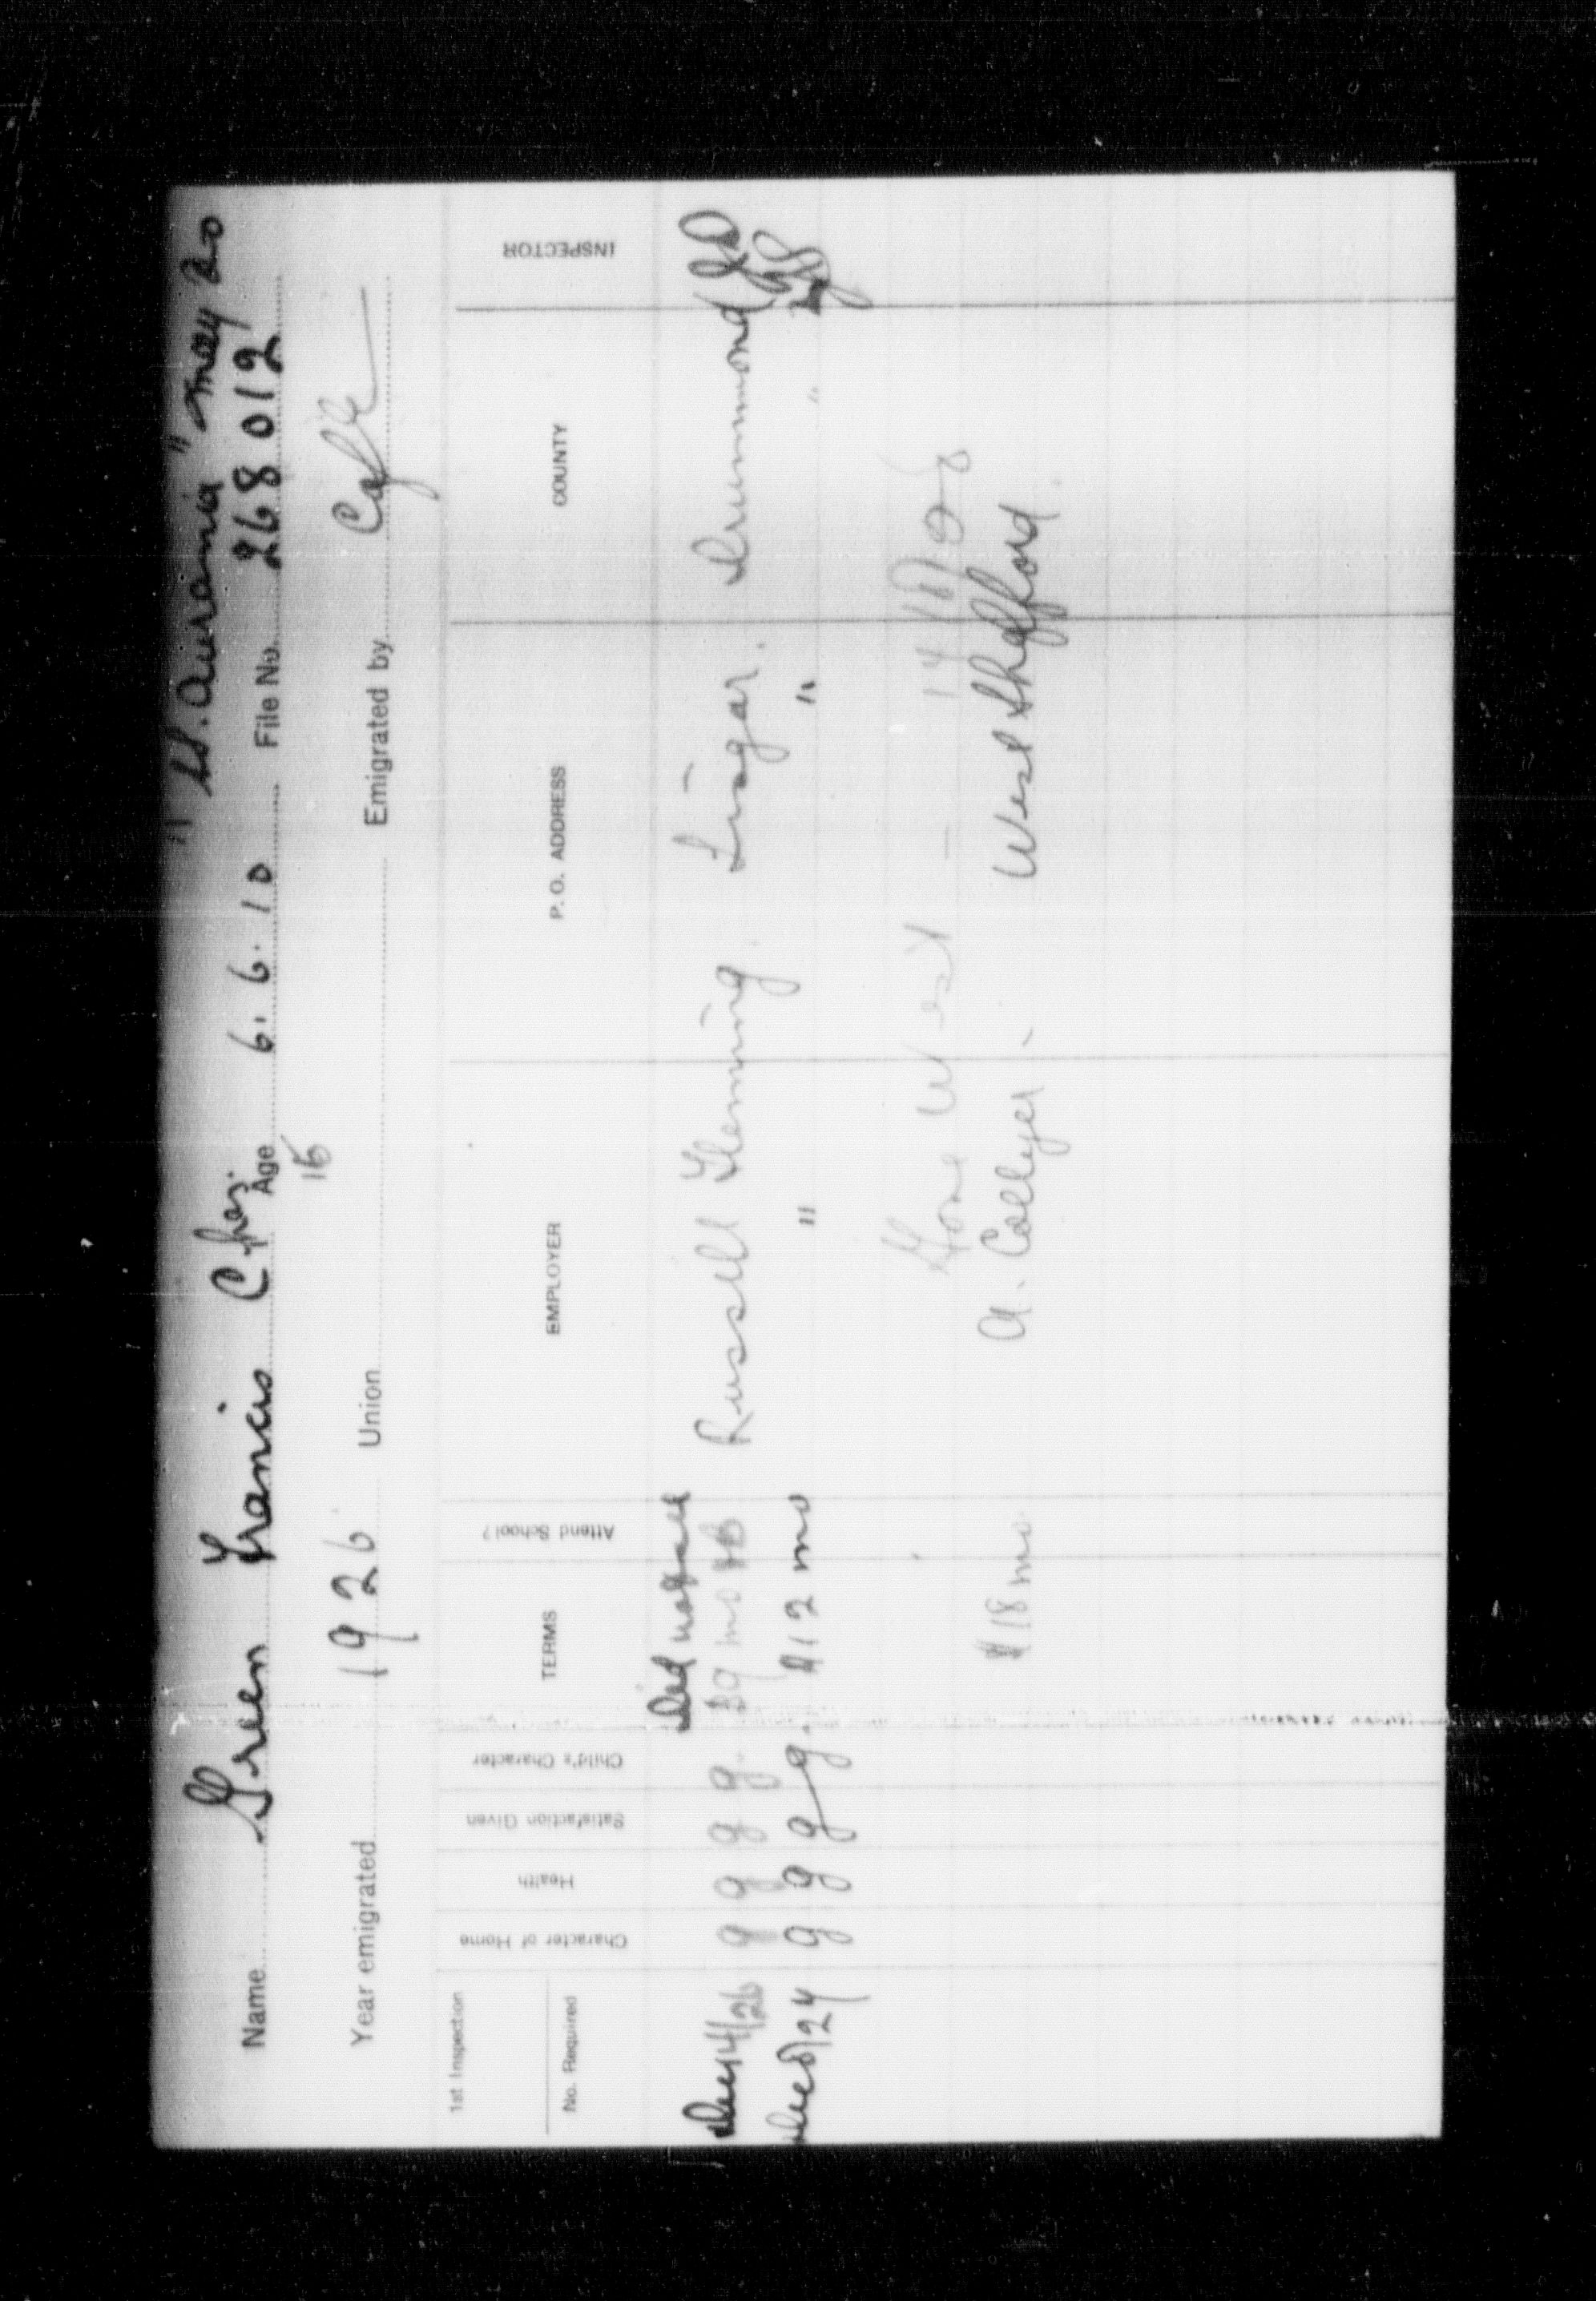 " SS. Aurania " May 20
Name Green Francis Chas. Age 6. 6. 10 File No. 268 012
16
Year emigrated 1926 Union Emigrated by C of E
1st Inspection
No. Required
Character of Home Health Satisfaction Given Child's Character TERMS Attend School? EMPLOYER P. O. ADDRESS COUNTY INSPECTOR
Did not see
Dec 14/26 g g g g. $9 mo Russell Fleming. Lisgar. Drummond
Dec 8/27 g g g g. $12 mo " " "
Gone West —
$18 mo. A. Collyer. West Shefford